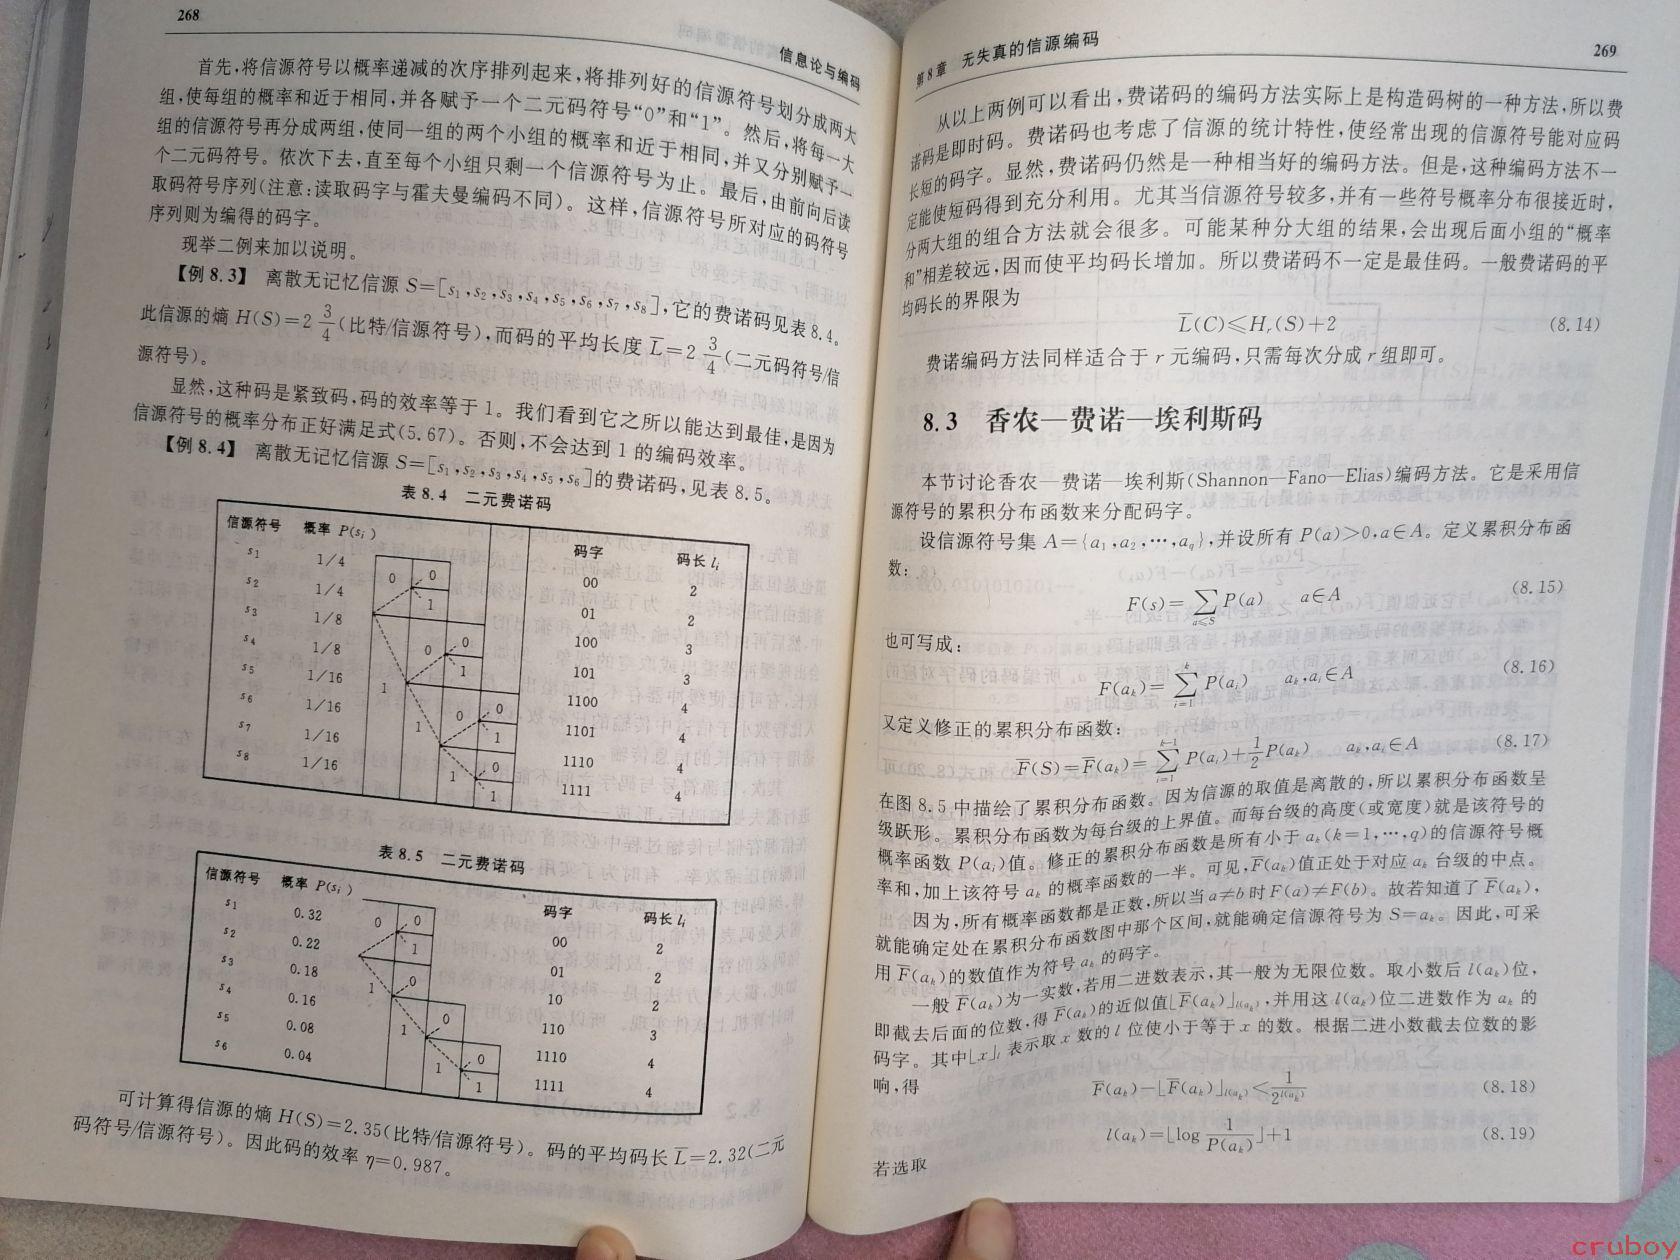 268
信息论与编码
首先,将信源符号以概率递减的次序排列起来,将排列好的信源符号划分成两大
组,使每组的概率和近于相同,并各赋予一个二元码符号“0”和“1”。然后,将每一大
组的信源符号再分成两组,使同一组的两个小组的概率和近于相同,并又分别赋予一
个二元码符号。依次下去,直至每个小组只剩一个信源符号为止。最后,由前向后读
取码符号序列(注意:读取码字与霍夫曼编码不同)。这样,信源符号所对应的码符号
序列则为编得的码字。
现举二例来加以说明。
【例 8.3】 离散无记忆信源 S=[s₁,s₂,s₃,s₄,s₅,s₆,s₇,s₈],它的费诺码见表 8.4。
此信源的熵 H(S)=2 3/4(比特/信源符号),而码的平均长度 L̄=2 3/4(二元码符号/信
源符号)。
显然,这种码是紧致码,码的效率等于 1。我们看到它之所以能达到最佳,是因为
信源符号的概率分布正好满足式(5.67)。否则,不会达到 1 的编码效率。
【例 8.4】 离散无记忆信源 S=[s₁,s₂,s₃,s₄,s₅,s₆]的费诺码,见表 8.5。
表 8.4 二元费诺码
信源符号 概率 P(sᵢ) 码字 码长 lᵢ
s₁ 1/4 0 0 00 2
s₂ 1/4 1 01 2
s₃ 1/8 0 0 100 3
s₄ 1/8 1 101 3
s₅ 1/16 1 0 0 1100 4
s₆ 1/16 1 1 1101 4
s₇ 1/16 1 0 1110 4
s₈ 1/16 1 1111 4
表 8.5 二元费诺码
信源符号 概率 P(sᵢ) 码字 码长 lᵢ
s₁ 0.32 0 0 00 2
s₂ 0.22 1 01 2
s₃ 0.18 1 0 10 2
s₄ 0.16 1 0 110 3
s₅ 0.08 1 0 1110 4
s₆ 0.04 1 1111 4
可计算得信源的熵 H(S)=2.35(比特/信源符号)。码的平均码长 L̄=2.32(二元
码符号/信源符号)。因此码的效率 η=0.987。
第 8 章 无失真的信源编码
269
从以上两例可以看出,费诺码的编码方法实际上是构造码树的一种方法,所以费
诺码是即时码。费诺码也考虑了信源的统计特性,使经常出现的信源符号能对应码
长短的码字。显然,费诺码仍然是一种相当好的编码方法。但是,这种编码方法不一
定能使短码得到充分利用。尤其当信源符号较多,并有一些符号概率分布很接近时,
分两大组的组合方法就会很多。可能某种分大组的结果,会出现后面小组的“概率
和”相差较远,因而使平均码长增加。所以费诺码不一定是最佳码。一般费诺码的平
均码长的界限为
L̄(C)⩽Hᵣ(S)+2 (8.14)
费诺编码方法同样适合于 r 元编码,只需每次分成 r 组即可。
8.3 香农—费诺—埃利斯码
本节讨论香农—费诺—埃利斯(Shannon—Fano—Elias)编码方法。它是采用信
源符号的累积分布函数来分配码字。
设信源符号集 A={a₁,a₂,⋯,a_q},并设所有 P(a)>0,a∈A。定义累积分布函
数:
F(s)=∑_{a⩽s} P(a) a∈A (8.15)
也可写成:
F(aₖ)=∑_{i=1}^{k} P(aᵢ) aₖ,aᵢ∈A (8.16)
又定义修正的累积分布函数:
F̄(S)=F̄(aₖ)=∑_{i=1}^{k−1} P(aᵢ)+1/2 P(aₖ) aₖ,aᵢ∈A (8.17)
在图 8.5 中描绘了累积分布函数。因为信源的取值是离散的,所以累积分布函数呈
级跃形。累积分布函数为每台级的上界值。而每台级的高度(或宽度)就是该符号的
概率函数 P(aᵢ)值。修正的累积分布函数是所有小于 aₖ(k=1,⋯,q)的信源符号概
率和,加上该符号 aₖ 的概率函数的一半。可见,F̄(aₖ)值正处于对应 aₖ 台级的中点。
因为,所有概率函数都是正数,所以当 a≠b 时 F(a)≠F(b)。故若知道了 F̄(aₖ),
就能确定处在累积分布函数图中那个区间,就能确定信源符号为 S=aₖ。因此,可采
用 F̄(aₖ)的数值作为符号 aₖ 的码字。
一般 F̄(aₖ)为一实数,若用二进数表示,其一般为无限位数。取小数后 l(aₖ)位,
即截去后面的位数,得 F̄(aₖ)的近似值⌊F̄(aₖ)⌋_{l(aₖ)},并用这 l(aₖ)位二进数作为 aₖ 的
码字。其中⌊x⌋ₗ 表示取 x 数的 l 位使小于等于 x 的数。根据二进小数截去位数的影
响,得
F̄(aₖ)−⌊F̄(aₖ)⌋_{l(aₖ)}⩽1/2^{l(aₖ)} (8.18)
若选取
l(aₖ)=⌊log 1/P(aₖ)⌋+1 (8.19)
cruboy